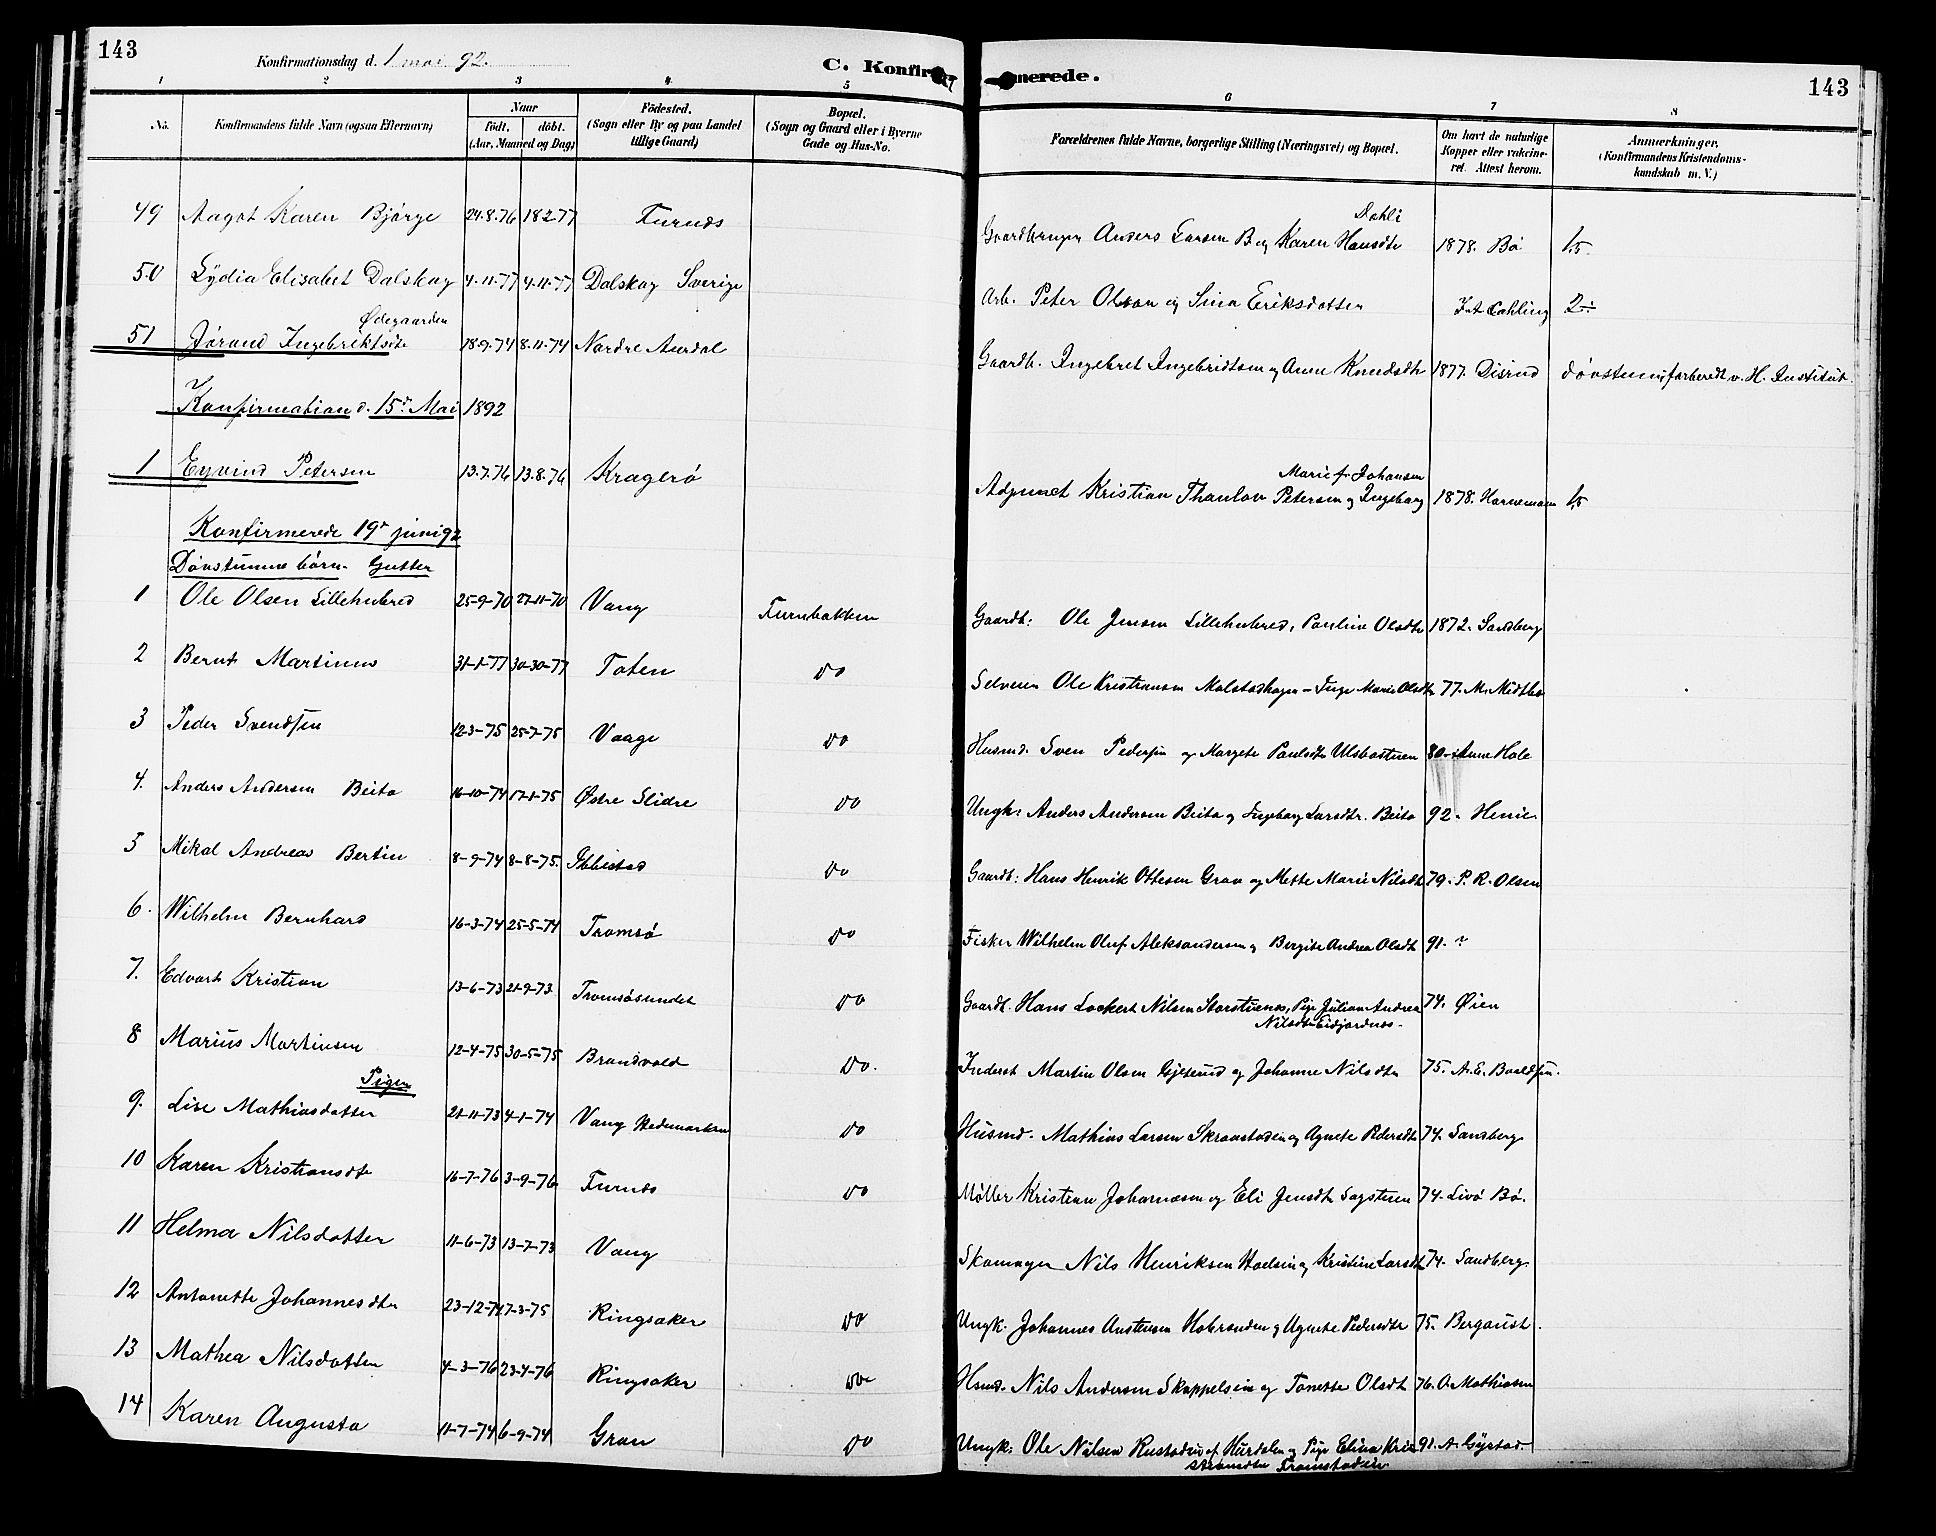 143
Konfirmationsdag d. 1 mai 92.
C. Konfir merede.
143
1 2 3 4 5 6 7 8
No.
Konfirmandens fulde Navn (ogsaa Efternavn)
Naar
födt, döbt.
(Aar, Maaned og Dag)
Födested.
(Sogn eller By og paa Landet
tillige Gaard)
Bopæl.
(Sogn og Gaard eller i Byerne
Gade og Hus-No.
Forældrenes fulde Navne, borgerlige Stilling (Næringsvei) og Bopæl.
Om havt de naturlige
Kopper eller vakcine-
ret. Attest herom.
Anmærkninger.
(Konfirmandens Kristendoms-
kundskab m. V.)
Dahli
49 Aagot Karen Bjørge 24.8.76 18.2.77 Furnæs Gaardbruger Anders Larsen B og Karen Hansdtr 1878. Bø 1,5.
50 Lydia Elisabet Dalskog 4.11.77 4.11.77 Dalskog Sverige Arb. Peter Olson og Sina Eriksdotter 2
Ødegaarden
51 Jørand Ingebriktsdtr 18.9.74 8.11.74 Nordre Aurdal Gaardb. Ingebret Ingebrigtsen og Anne Knudsdtr 1877. Disrud døvstum, forberedt v. H. Institut.
Konfirmation d. 15de Mai 1892
Marie f. Johansen
1 Eyvind Petersen 13.7.76 13.8.76 Kragerø Adjunct Kristian Thaulow Petersen og Ingeborg 1878. Hornemann 1,5
Konfirmerede 19de juni 92
Døvstumme børn. Gutter
1 Ole Olsen Lillehubred 25-9-70 27-11-70 Vang Furubakken Gaardb: Ole Jensen Lillehubred, Pauline Olsdtr 1872. Sandberg
2 Bernt Martinus 31-1-77 30-30-77 Toten do Selveier Ole Kristiansen Molstadhagen - Inge Marie Olsdtr 77. M. Midtbø
3 Peder Svendsen 12-3-75 25-7-75 Vaage do Husmd. Sven Pedersen og Margete Paulsdtr Ulsbøstuen 80. Anne Hole
4. Anders Andersen Beito 16-10-74 17-1-75 Østre Slidre do Ungk: Anders Andersen Beito og Ingeborg Larsdtr. Beito 92. Henie
5 Mikal Andreas Bertin 8-9-74 8-8-75. Ibbestad do Gaardb: Hans Henrik Ottesen Grav og Mette Marie Nilsdtr 79. P. R. Olsen
6. Wilhelm Bernhard 16-3-74 25-5-74 Tromsø do Fisker Wilhelm Oluf Aleksandersen og Bergite Andrea Olsdtr 91. ?
7. Edvart Kristian 13-6-73 21-9-73 Tromsøsundet do Gaardb. Hans Lockert Nilsen Storstienes, Pige Julian Andrea 74. Øien
Nilsdtr Eidjordnes.
8 Marius Martinsen 12-4-75 30-5-75 Brandvold do. Inderst Martin Olsen Gjeterud og Johanne Nilsdtr 75. A. E. Boaldsen.
Piger
9. Lise Mathiasdatter 21-11-73 4-1-74 Vang Hedemarken do Husmd. Mathias Larsen Skramstaden og Agnete Pedersdtr 74. Sandberg
10 Karen Kristiansdtr 16-7-76 3-9-76 Furnæs do Møller Kristian Johannesen og Eli Jensdtr Sagstuen 74. Livø Bø.
11 Helma Nilsdatter 11-6-73 13-7-73 Vang Skomager Nils Henriksen Hoelsin og Kristine Larsdtr 74. Sandberg
12 Antonette Johannesdtr 23-12-74 7-3-75 Ringsaker do Ungk. Johannes Austensen Hobranden og Agnete Pedersdtr 75. Bergaust.
13 Mathea Nilsdatter 4-3-76 23-4-76 Ringsaker do Hsmd. Nils Andersen Skappelsin og Tonette Olsdtr 76. O. Mathiasen
14 Karen Augusta 11-7-74 6-9-74 Gran do Ungk: Ole Nilsen Rustaden af Hurdalen og Pige Elina Kri 91. A. Gystad
stiansdtr Framstadeie